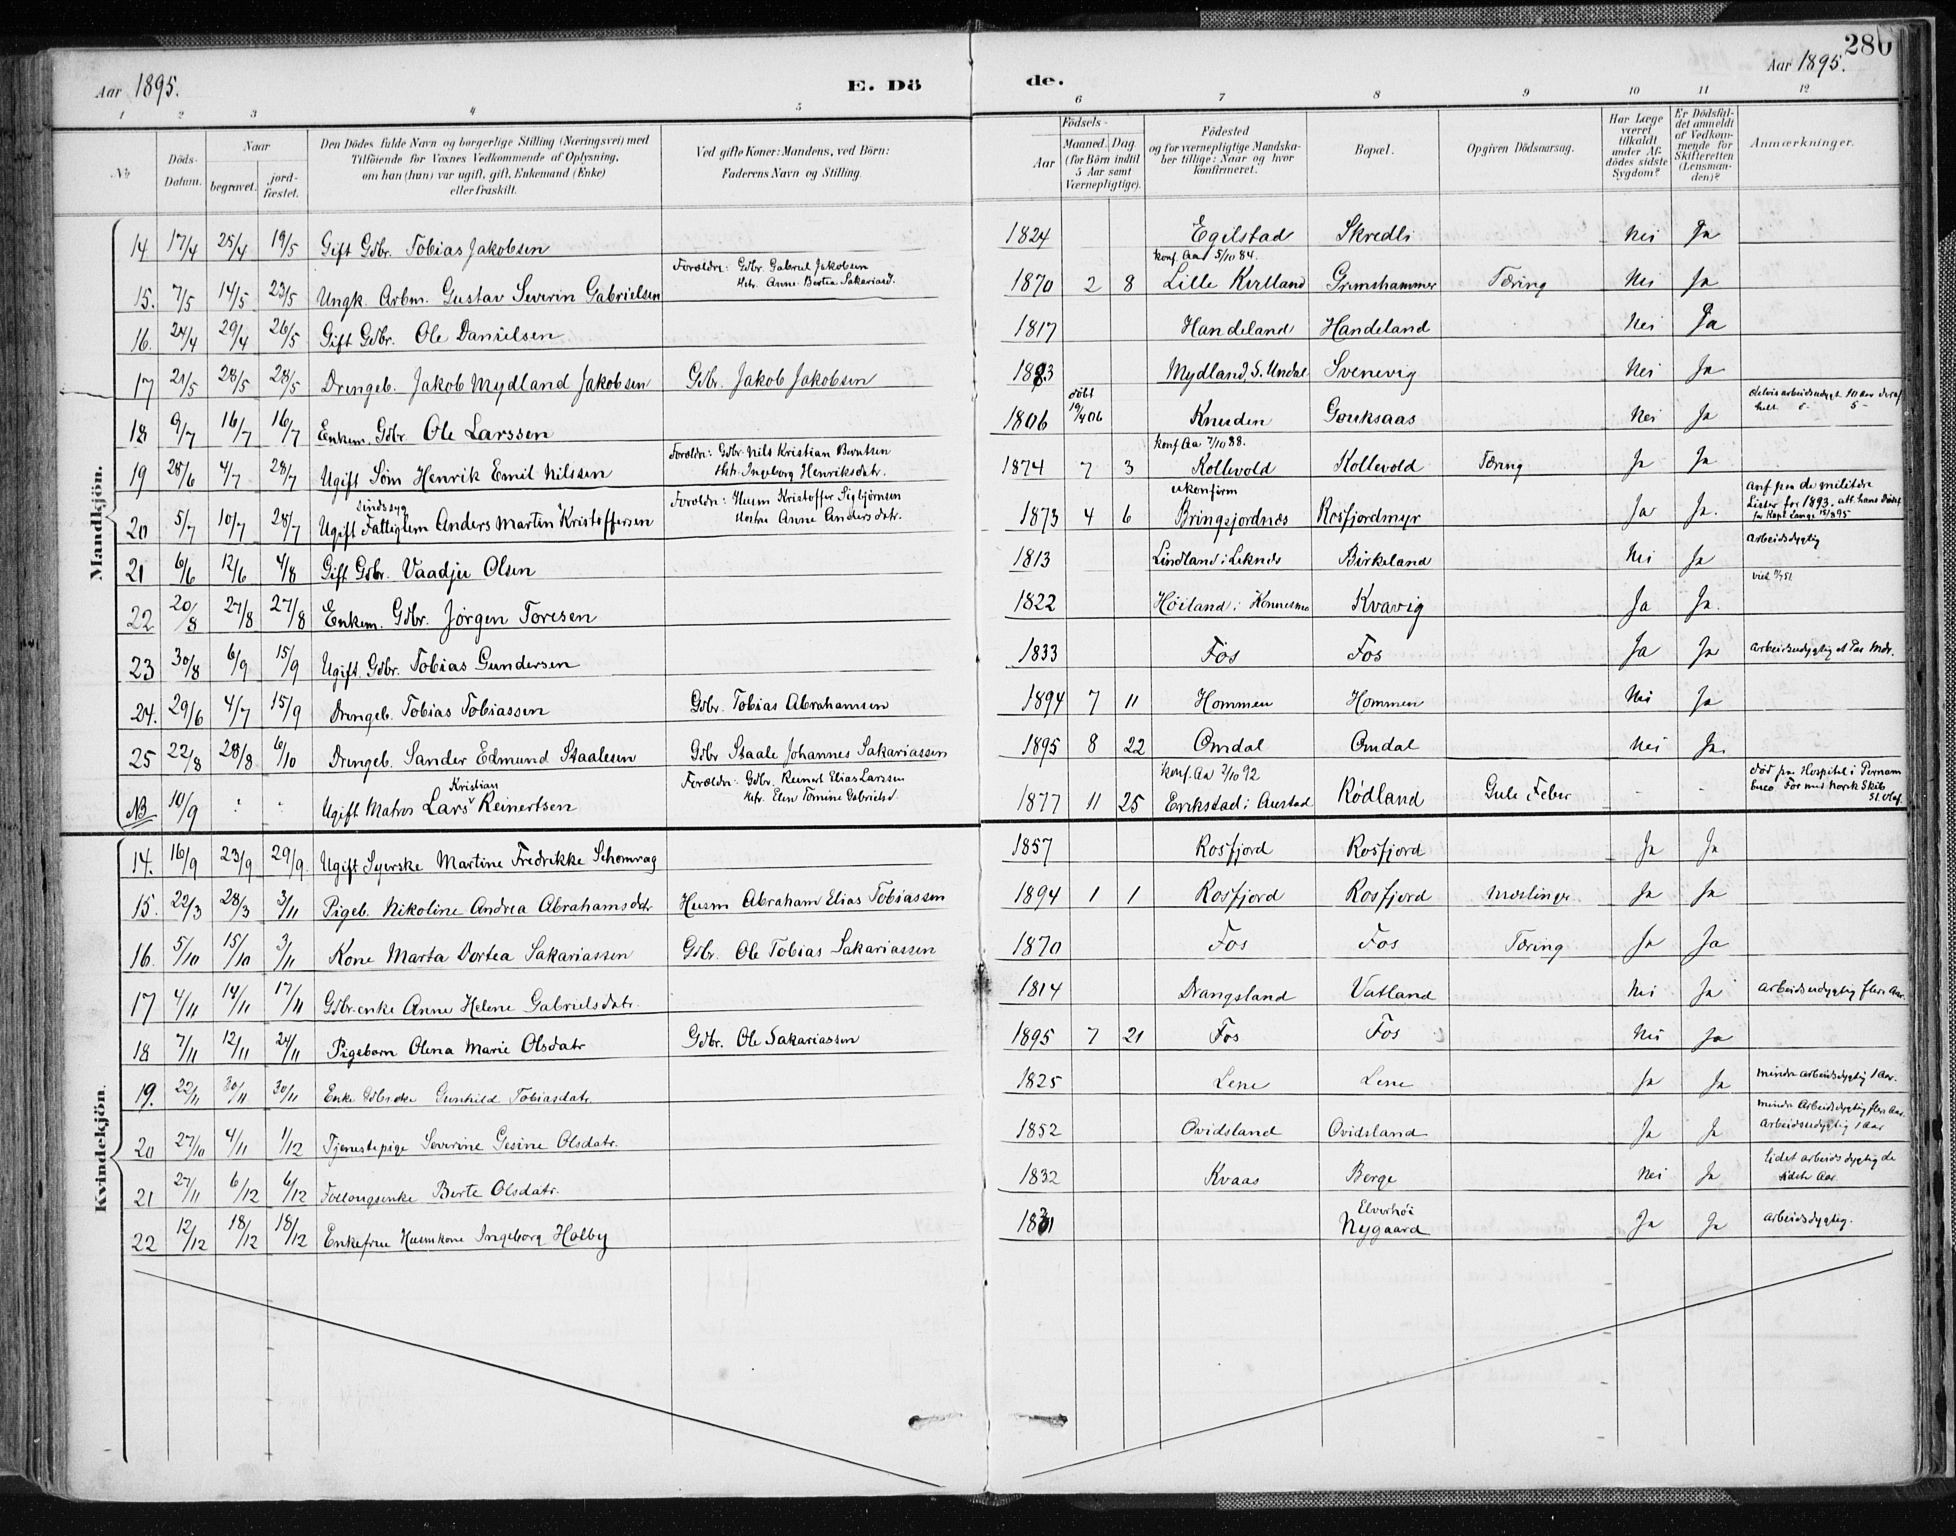 280
Aar 1895.
E. Dö
de.
Aar 1895.
1 2 3 4 5 6 7 8 9 10 11 12
No
Döds-Datum.
Naar
begravet.
jord-fæstet.
Den Dödes fulde Navn og borgerlige Stilling (Næringsvei) med
Tilföiende for Voxnes Vedkommende af Oplysning,
om han (hun) var ugift, gift, Enkemand (Enke)
eller fraskilt.
Ved gifte Koner: Mandens, ved Börn:
Faderens Navn og Stilling.
Födsels-
Aar
Maaned. Dag.
(for Börn indtil
5 Aar samt
Værnepligtige).
Födested
og for værnepligtige Mandska-
ber tillige: Naar og hvor
konfirmeret.
Bopæl.
Opgiven Dödsaarsag.
Har Læge
været
tilkaldt
under Af-
dödes sidste
Sygdom?
Er Dödsfal-
det anmeldt
af Vedkom-
mende for
Skifteretten
(Lensman-
den)?
Anmærkninger.
Mandkjön.
14 17/4 25/4 19/5 Gift Gdbr. Tobias Jakobsen 1824 Egilstad Skredli Nei Ja
Forældre: Gdbr. Gabriel Jakobsen konf. Aa 5/10 84.
15. 7/5 14/5 23/5 Ungk. Arbm. Gustav Severin Gabrielsen Hstr. Anne Bertea Sakariasd. 1870 2 8 Lille Kvelland Grimshammer Tæring Nei Ja
16. 24/4 29/4 26/5 Gift Gdbr. Ole Danielsen 1817 Handeland Handeland Nei Ja
17 21/5 28/5 28/5 Drengeb. Jakob Mydland Jakobsen Gdbr. Jakob Jakobsen 1893 Mydland, S. Undal Svenevig Nei Ja
døbt 19/4 06
18 9/7 16/7 16/7 Enkem. Gdbr. Ole Larssen 1806 Knuden Gouksaas Nei Ja delvis arbeidsudygt. 10 Aar deraf
helt 5-
Forældr: Gdbr. Nils Kristian Berntsen konf. Aa 7/10 88.
19 28/6 4/7 28/7 Ugift Søm Henrik Emil Nilssen Hstr. Ingeborg Henriksdatr. 1874 7 3 Kollevold Kollevold Tæring Ja Ja
sindssyg Forældr: Husm Kristoffer Sigbjørnsen ukonfirm
20 5/7 10/7 28/7 Ugift Fattiglem Anders Martin Kristoffersen Hustru Anne Andersdatr. 1873 4 6 Bringsjordnes Rosfjordmyr Ja Ja. anf paa de militære
Lister for 1893. att. hans Død
for Kapt. Lange 15/8 95
21 6/6 12/6 4/8 Gift Gdbr. Vaadju Olsen 1813 Lindland i Leknes Birkeland Nei Ja arbeidsdygtig
22 20/8 27/8 27/8 Enkem. Gdbr. Jørgen Toresen 1822 Høiland i Konnesmo Kvavig Ja Ja.
23 30/8 6/9 15/9 Ugift Gdbr. Tobias Gundersen 1833 Fos Fos Ja Ja arbeidsudygtig et Par Mdr.
24. 29/6 4/7 15/9 Drengeb. Tobias Tobiassen Gdbr. Tobias Abrahamsen 1894 7 11 Hommen Hommen Nei Ja
25 22/8 28/8 6/10 Drengeb. Sander Edmund Staalesen Gdbr Staale Johannes Sakariassen 1895 8 22 Omdal Omdal Nei Ja.
Kristian Forældr: Gdbr. Reinert Elias Larssen konf. Aa 2/10 92
NB 10/9 - - Ugift Matros Lars Reinertsen Hstr. Elen Tomine Gabrielsd 1877 11 25 Erikstad i Austad Rødland Gule Feber - - død paa Hospital i Pernam
buco. For med norsk Skib
St. Olaf.
Kvindekjön.
14. 16/9 23/9 29/9. Ugift Syerske Martine Fredrikke Schomrag 1857 Rosfjord Rosfjord Ja Ja
15. 22/3 28/3 3/11 Pigeb. Nikoline Andrea Abrahamsdtr Husm Abraham Elias Tobiassen 1894 1 1 Rosfjord Rosfjord Mæslinger Ja Ja
16. 5/10 15/10 3/11 Kone Marta Dortea Sakariassen Gdbr. Ole Tobias Sakariassen 1870 Fos Fos Tæring Ja Ja
17 4/11 14/11 17/11 Gdbr.enke Anne Helene Gabrielsdatr. 1814 Drangsland Vatland Nei Ja arbeidsudygtig flere Aar.
18 7/11 12/11 24/11 Pigebarn Olena Marie Olsdatr Gdbr. Ole Sakariassen 1895 7 21 Fos Fos Nei Ja
19. 22/11 30/11 30/11 Enke Gunhild Tobiasdatr. 1825 Lene Lene Ja Ja mindre arbeidsdygtig 1 Aar.
20 27/10 4/11 1/12 Tjenestepige Severine Gesine Olsdatr. 1852 Ovidsland Ovidsland Ja Ja mindre arbeidsdygtig flere Aar.
arbeidsudygtig 1 Aar
21 27/11 6/12 6/12 Berte Olsdatr. 1832 Kvaas Berge Nei Ja Lidet arbeidsdygtig de
sidste Aar.
22 12/12 18/12 18/12 Enkefrue Husmkone Ingeborg Holby Elverhøi
Nygaard Ja Ja arbeidsdygtig.